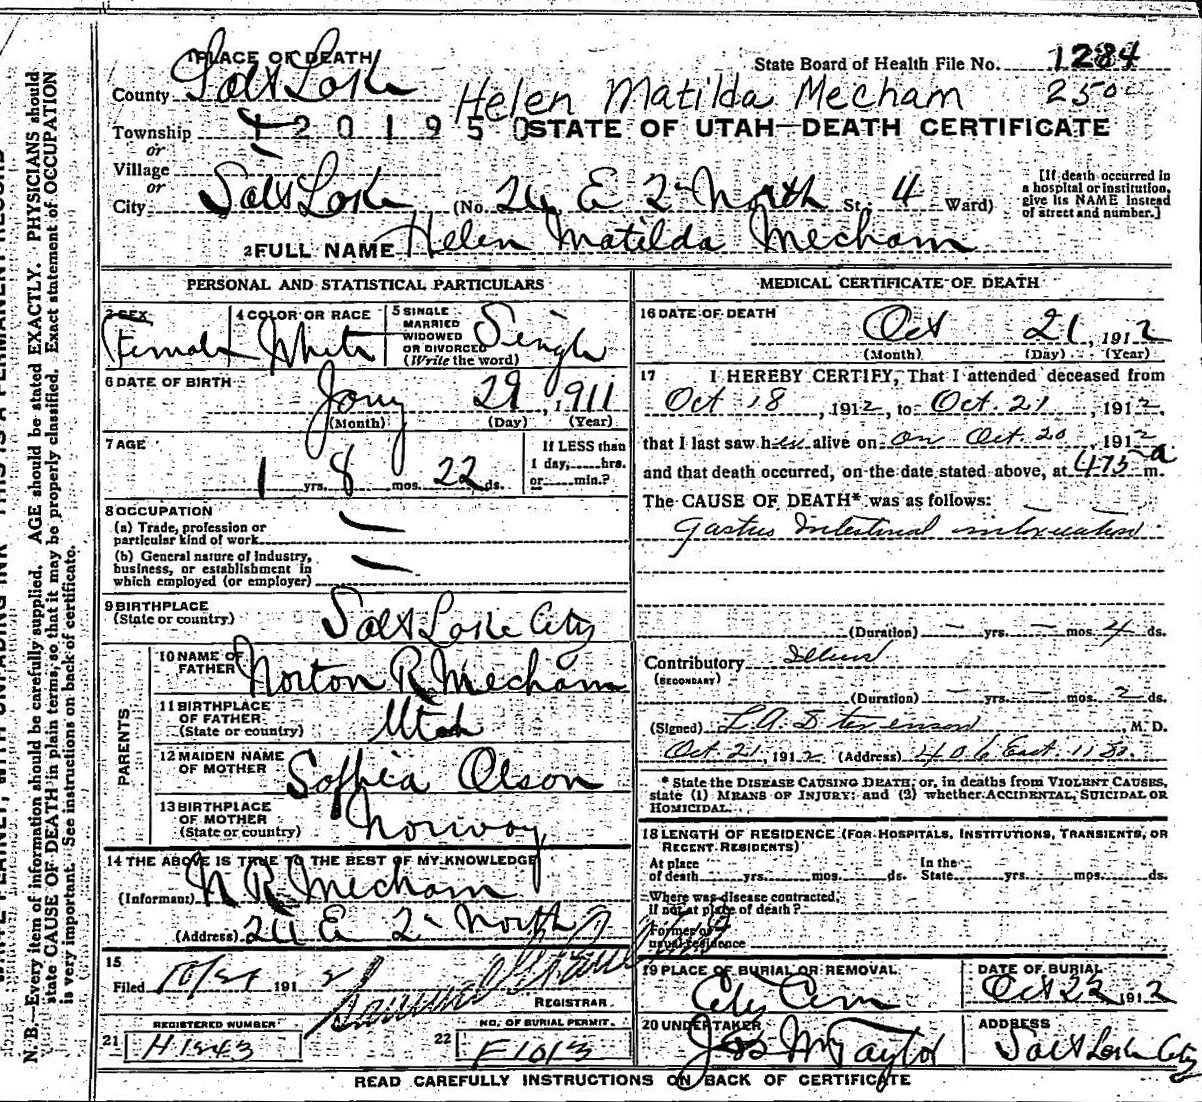 1 PLACE OF DEATH
State Board of Health File No. 1284
County Salt Lake
Helen Matilda Mecham
250
Township
201950
STATE OF UTAH—DEATH CERTIFICATE
or
Village
or
City Salt Lake (No. 26 E 2 North St. 4 Ward)
[If death occurred in
a hospital or institution,
give its NAME instead
of street and number.]
2 FULL NAME Helen Matilda Mecham
PERSONAL AND STATISTICAL PARTICULARS
3 SEX
Female
4 COLOR OR RACE
White
5 SINGLE
MARRIED
WIDOWED
OR DIVORCED
(Write the word)
Single
6 DATE OF BIRTH
Jany 29, 1911
(Month) (Day) (Year)
7 AGE
1 yrs. 8 mos. 22 ds.
If LESS than
1 day, hrs.
or min.?
8 OCCUPATION
(a) Trade, profession or
particular kind of work
(b) General nature of industry,
business, or establishment in
which employed (or employer)
9 BIRTHPLACE
(State or country)
Salt Lake City
PARENTS
10 NAME OF
FATHER
Norton R Mecham
11 BIRTHPLACE
OF FATHER
(State or country)
Utah
12 MAIDEN NAME
OF MOTHER
Sophia Olson
13 BIRTHPLACE
OF MOTHER
(State or country)
Norway
14 THE ABOVE IS TRUE TO THE BEST OF MY KNOWLEDGE
(Informant) N R Mecham
(Address) 26 E 2 North
15
Filed 10/21 1912
REGISTRAR.
21 REGISTERED NUMBER
H1343
22 NO. OF BURIAL PERMIT.
F1013
MEDICAL CERTIFICATE OF DEATH
16 DATE OF DEATH
Oct 21, 1912
(Month) (Day) (Year)
17 I HEREBY CERTIFY, That I attended deceased from
Oct 18, 1912, to Oct. 21, 1912,
that I last saw her alive on on Oct. 20 1912
and that death occurred, on the date stated above, at 415 a m.
The CAUSE OF DEATH* was as follows:
Gastro Intestinal intoxication
(Duration) — yrs. — mos. 4 ds.
Contributory Ileus
(SECONDARY)
(Duration) — yrs. — mos. 2 ds.
(Signed) L. A. Stevenson, M. D.
Oct 21, 1912 (Address) 406 East 11 So.
* State the DISEASE CAUSING DEATH; or, in deaths from VIOLENT CAUSES,
state (1) MEANS OF INJURY; and (2) whether ACCIDENTAL, SUICIDAL OR
HOMICIDAL.
18 LENGTH OF RESIDENCE (FOR HOSPITALS, INSTITUTIONS, TRANSIENTS, OR
RECENT RESIDENTS)
At place
of death yrs. mos. ds.
In the
State yrs. mos. ds.
Where was disease contracted,
if not at place of death?
Former or
usual residence
19 PLACE OF BURIAL OR REMOVAL
City Cem
DATE OF BURIAL
Oct 22 1912
20 UNDERTAKER
Jos Wm Taylor
ADDRESS
Salt Lake City
READ CAREFULLY INSTRUCTIONS ON BACK OF CERTIFICATE
N. B.—Every item of information should be carefully supplied. AGE should be stated EXACTLY. PHYSICIANS should
state CAUSE OF DEATH in plain terms, so that it may be properly classified. Exact statement of OCCUPATION
is very important. See instructions on back of certificate.